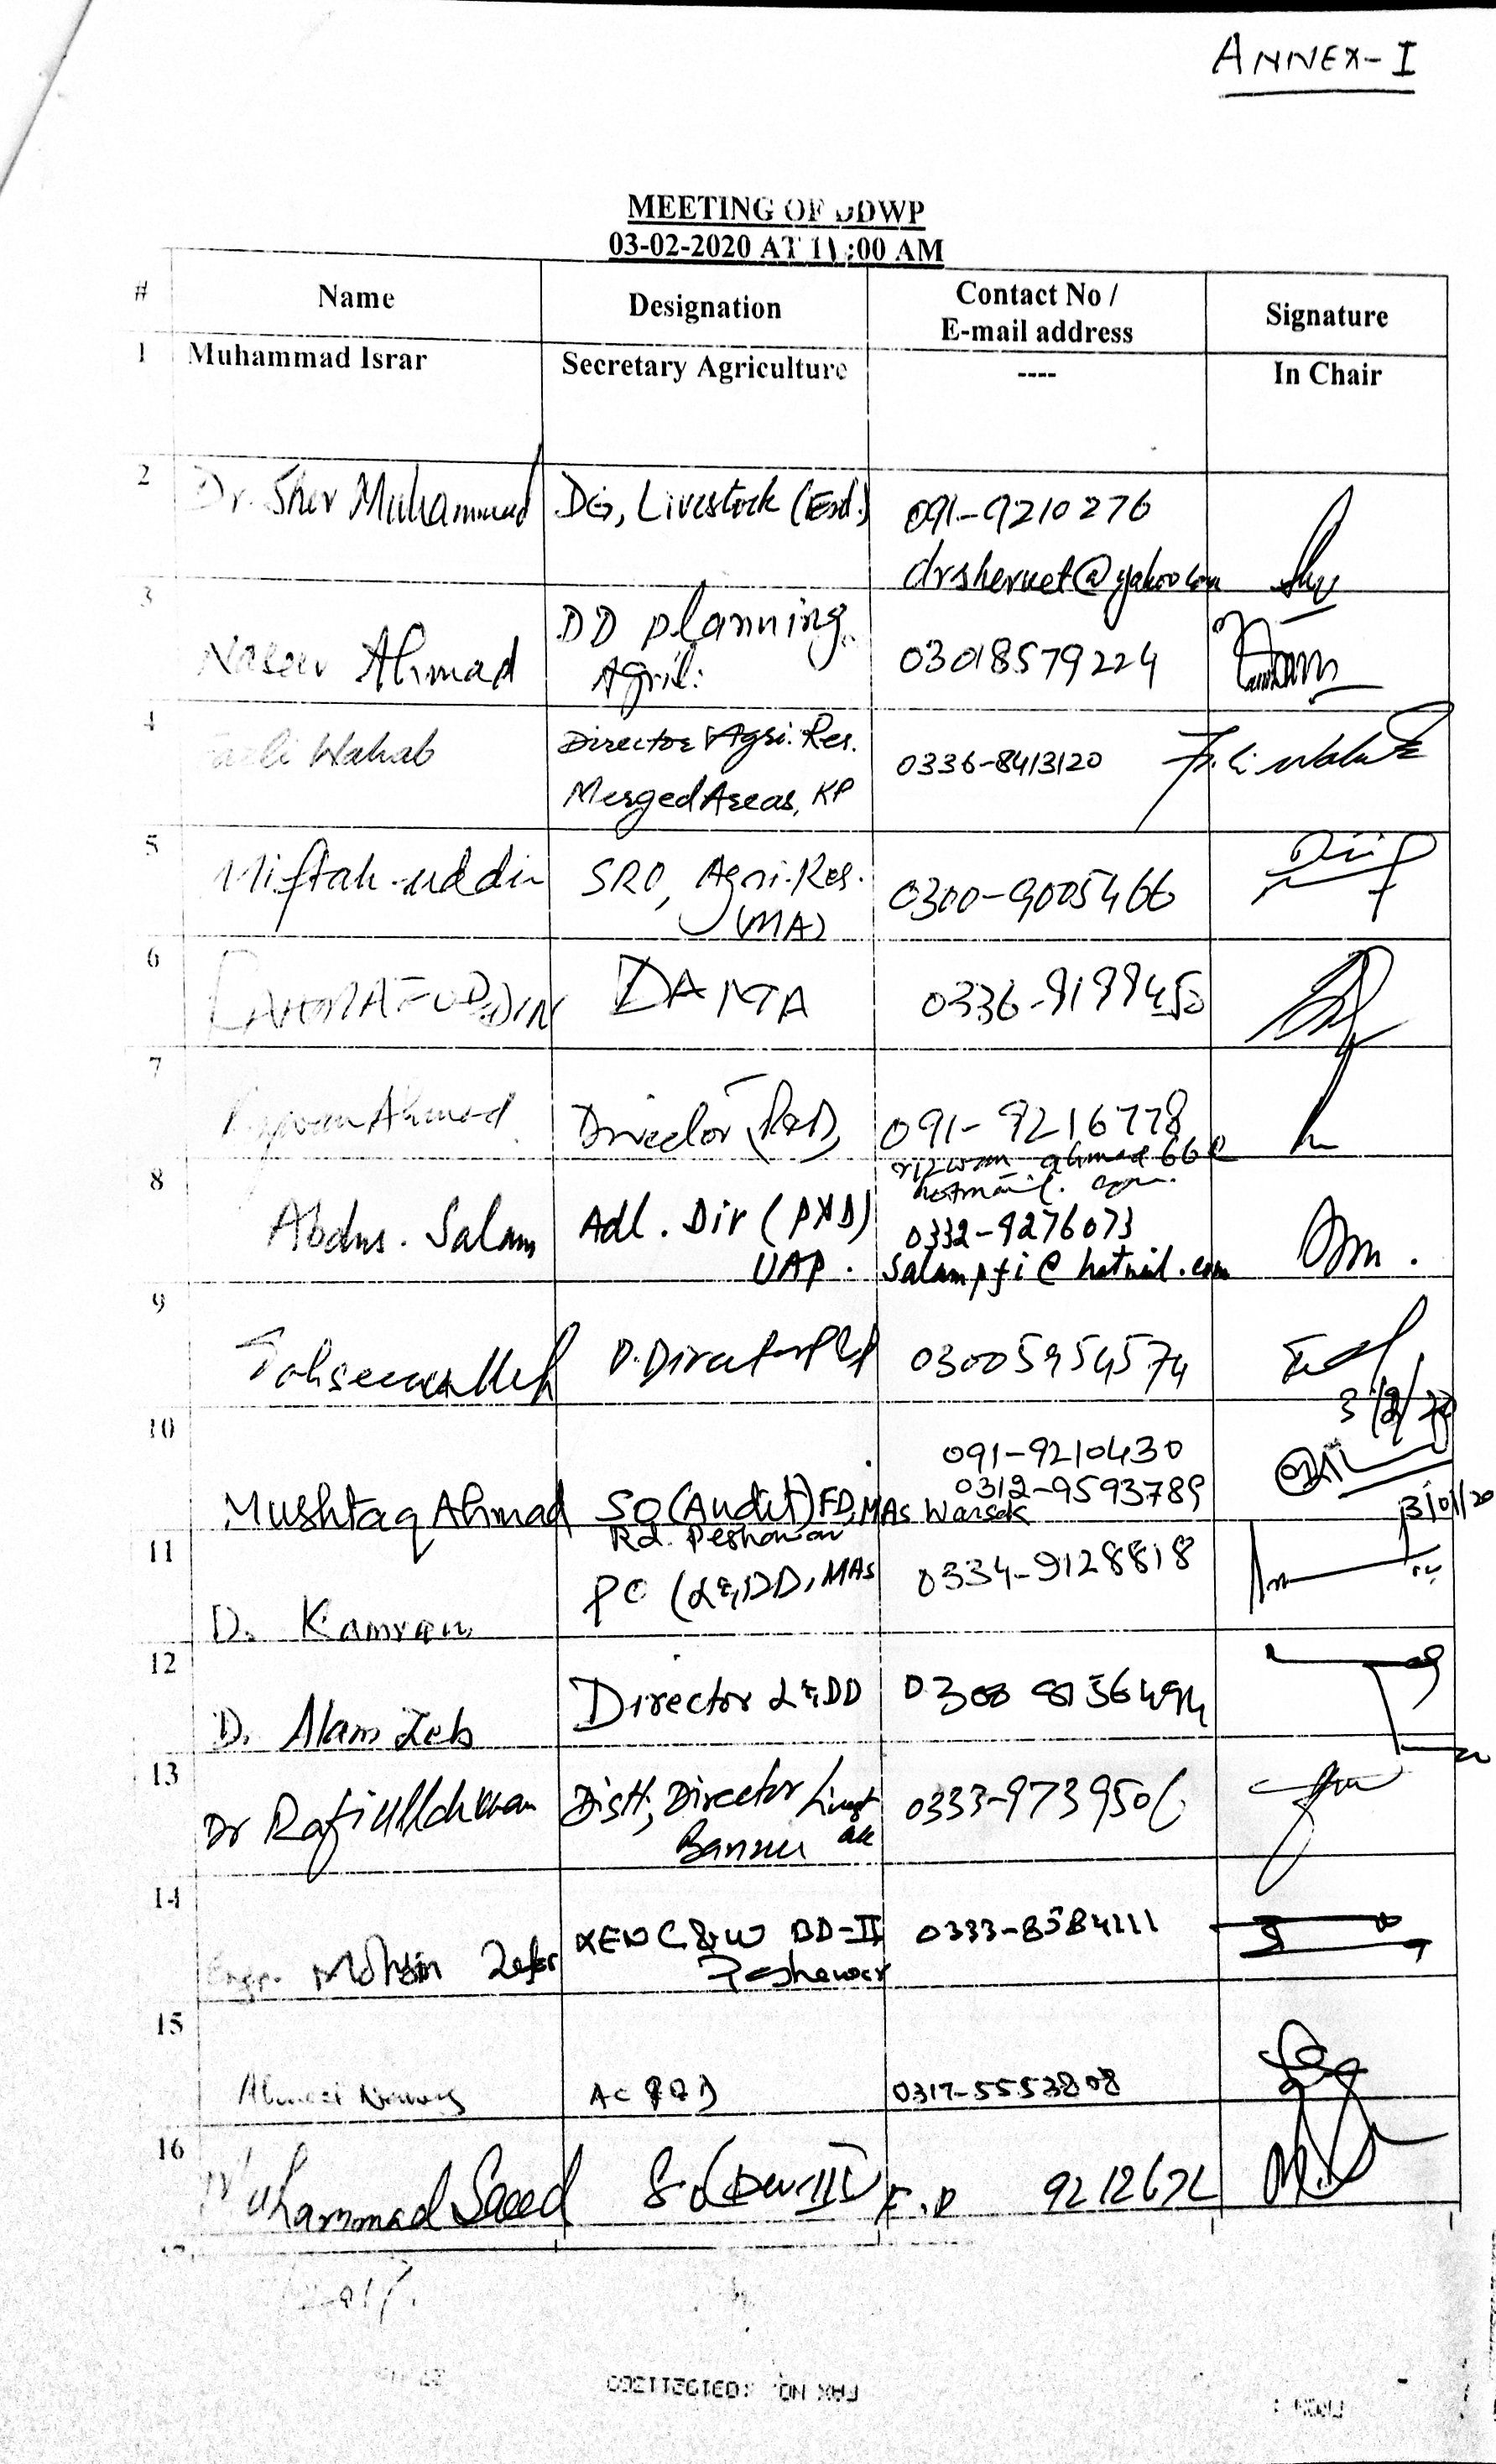 ANNEX-I
MEETING OF DDWP
03-02-2020 AT 11:00 AM
# Name Designation Contact No / E-mail address Signature
1 Muhammad Israr Secretary Agriculture ---- In Chair
2 Dr. Sher Muhammad DG, Livestock (Ext.) 091-9210276
drshervet@yahoo.com
3 Naseer Ahmad DD planning 03018579224
Agril:
4 Fazli Wahab Director Agri. Res. 0336-8413120 Fazli Wahab
Merged Areas, KP
5 Miftah-uddin SRO, Agri. Res. 0300-9005466
(MA)
6 0336-9199450
7 Rizwan Ahmad Director (P&D) 091-9216778
rizwan ahmad 66@
hotmail.com
8 Abdus. Salam Adl. Dir (P&D) 0332-9276073
UAP. salampfi@hotmail.com
9 Tahseenullah D. Director 03005954574
3/2/20
10 091-9210430
Mushtaq Ahmad SO (Audit) FD, MAs Warsak 0312-9593789
Rd. Peshawar
11 D. Kamran PO (L&DD, MAs 0334-9128818
12 D. Alam Zeb Director L&DD
13 Dr Rafiullah Khan Distt, Director Livest 0333-9739506
Bannu
14 Engr. Mohsin Zafar XEN C&W BD-II 0333-8584111
Peshawar
15 Ahmad Nawaz AC P&D 0317-5553808
16 Muhammad Saeed SO (Dev-III) F.D 9212672
17.
FAX NO.